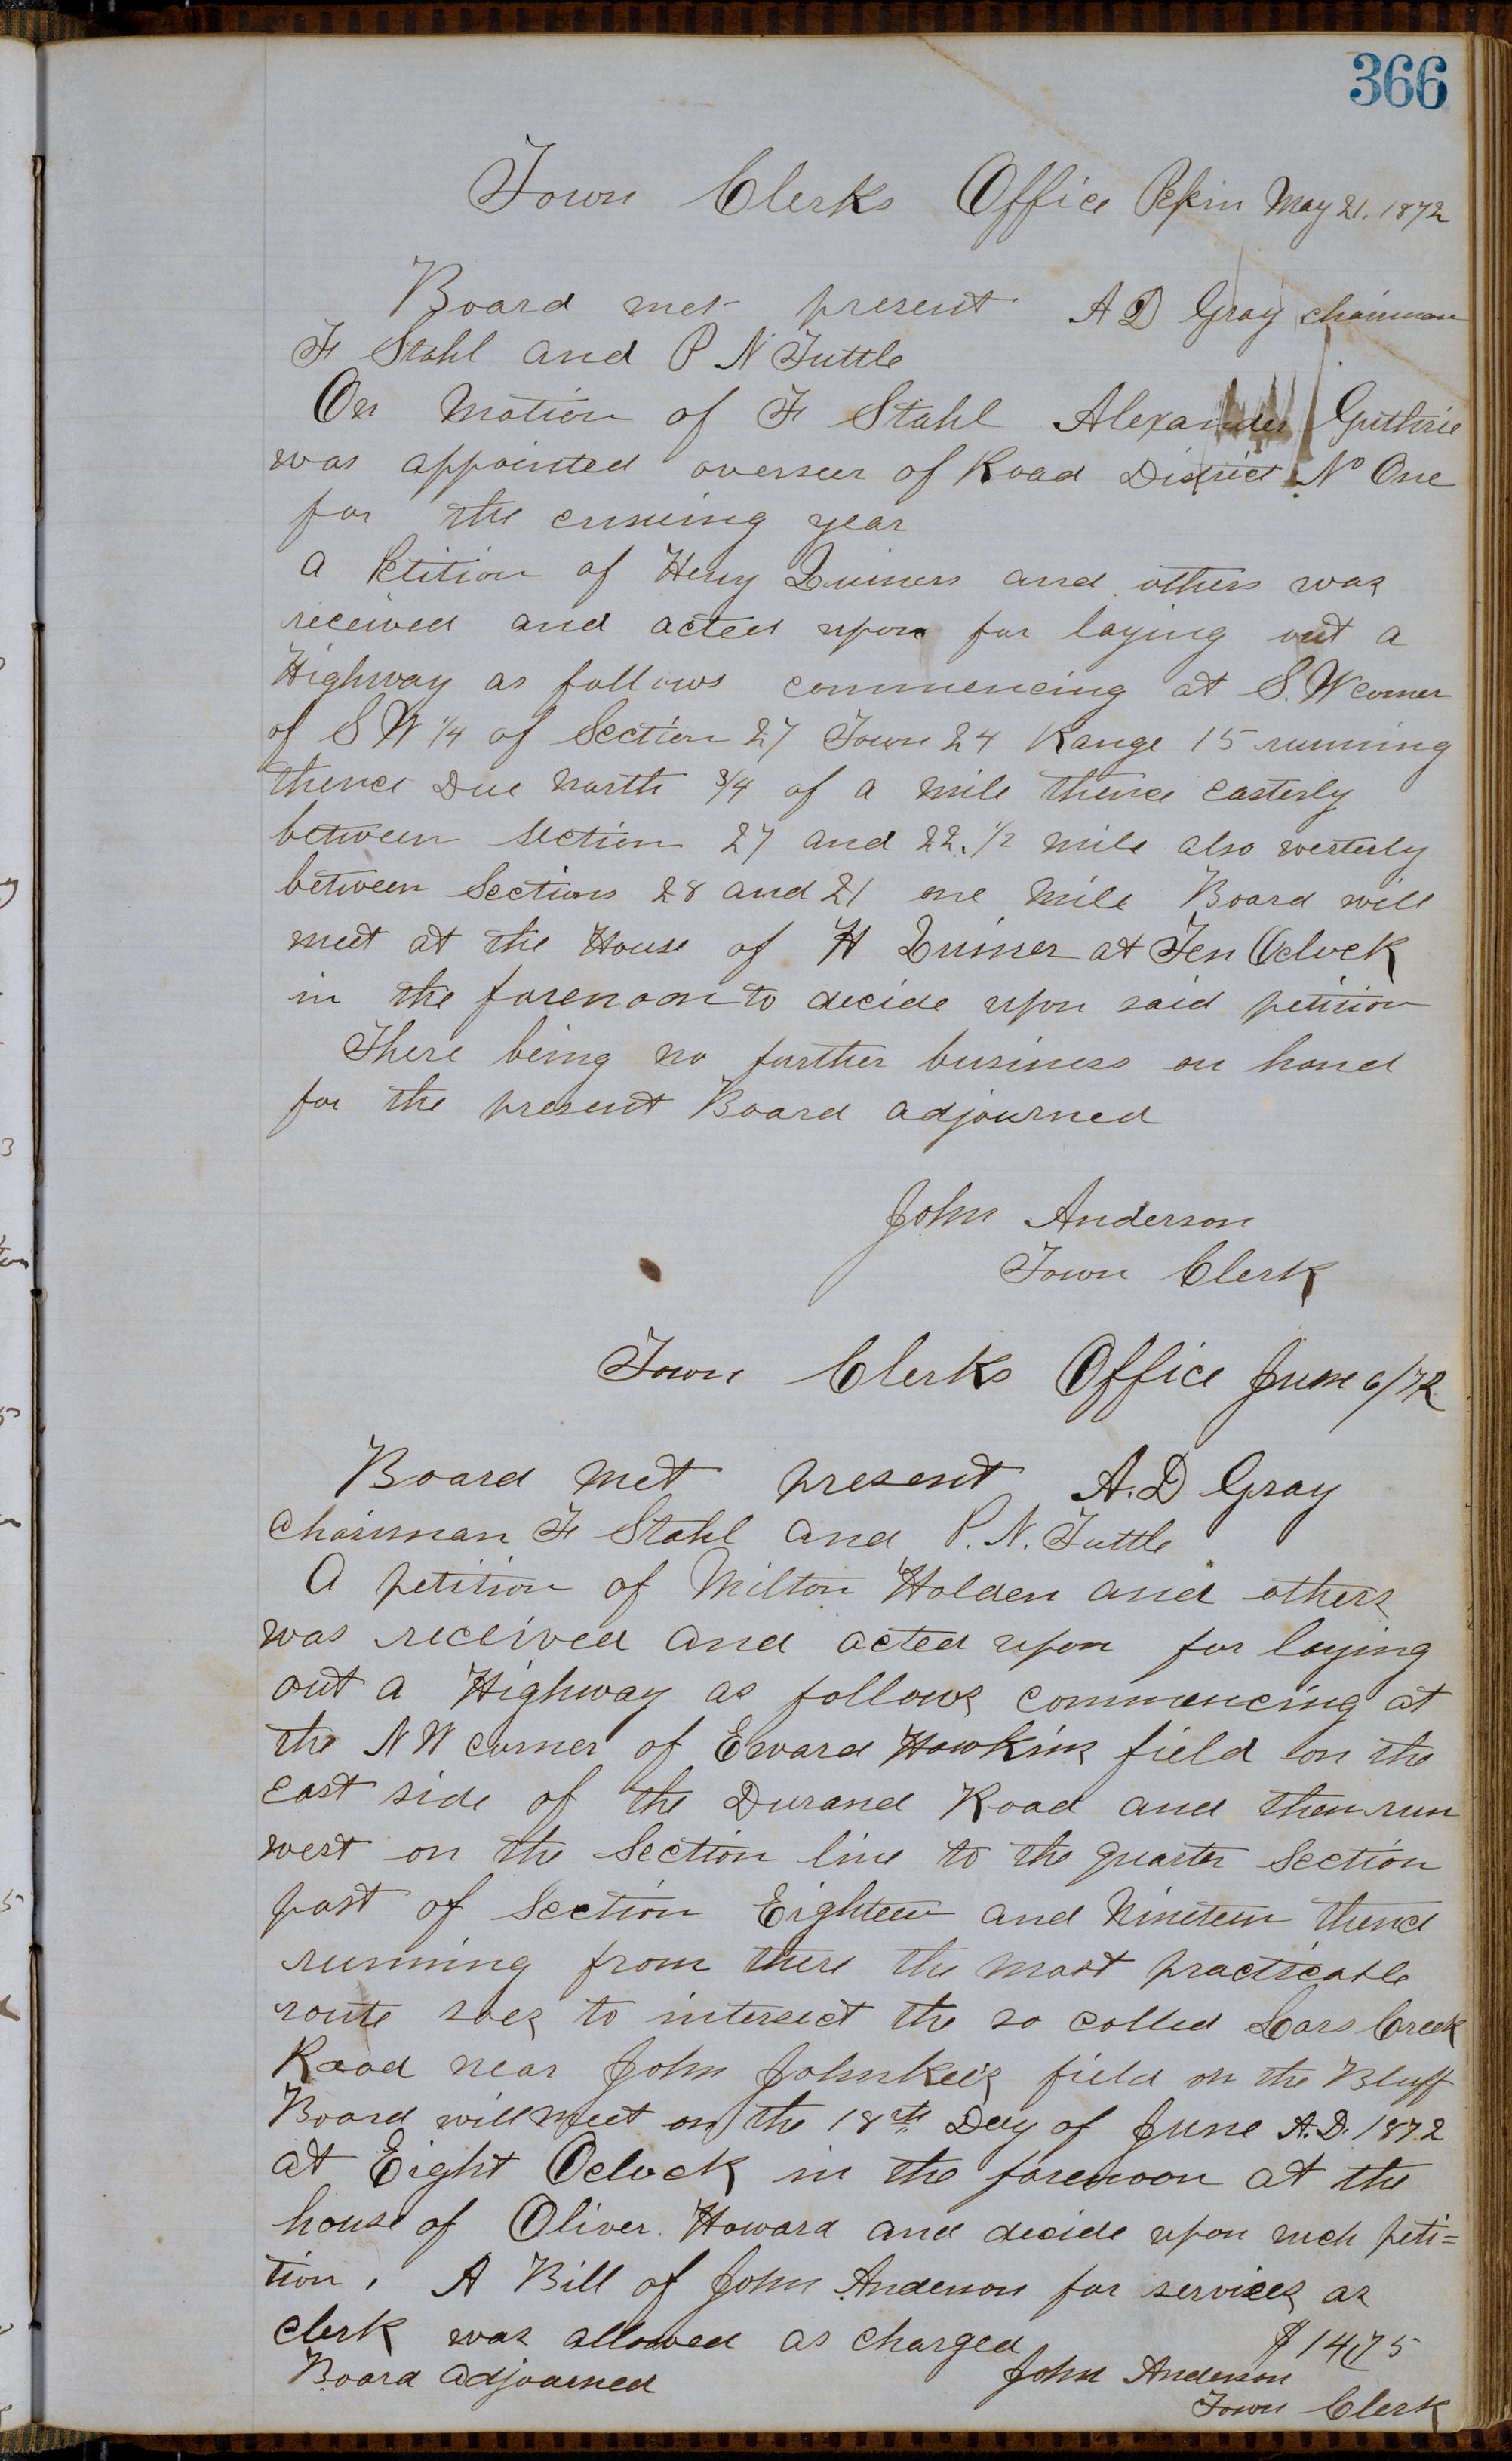 366
Town Clerks Office Pepin May 21. 1872
Board met present A D Gray chairman
F Stahl and P N Tuttle
On Motion of F Stahl Alexander Guthrie
was appointed overseer of Road District No One
for the ensueing year
A Petition of Heny Quiners and others was
received and acted upon for laying out a
Highway as follows commencing at S. W corner
of S W 1/4 of Section 27 Town 24 Range 15 running
thence Due North 3/4 of a mile thence easterly
between section 27 and 22. 1/2 mile also westerly
between Sections 28 and 21 one Mile Board will
meet at the House of H Quiner at Ten Oclock
in the forenoon to decide upon said petition
There being no further business on hand
for the present Board adjourned
John Anderson
Town Clerk
Town Clerks Office June 6/72
Board met present A. D Gray
Chairman F Stahl and P. N. Tuttle
A petition of Milton Holden and others
was received and acted upon for laying
out a Highway as follows commencing at
the N W corner of Eward Hawkins field on the
east side of the Durand Road and then run
west on the Section line to the quarter Section
post of Section Eighteen and Nineteen thence
running from there the most practicable
route soes to intersect the so called Lars Creek
Road near John Johnkees field on the Bluff
Board will meet on the 18th Day of June A. D. 1872
at Eight Oclock in the forenoon at the
house of Oliver Howard and decide upon such peti=
tion. A Bill of John Anderson for services as
clerk was allowed as charged $ 14,75
Board adjourned John Anderson
Town Clerk